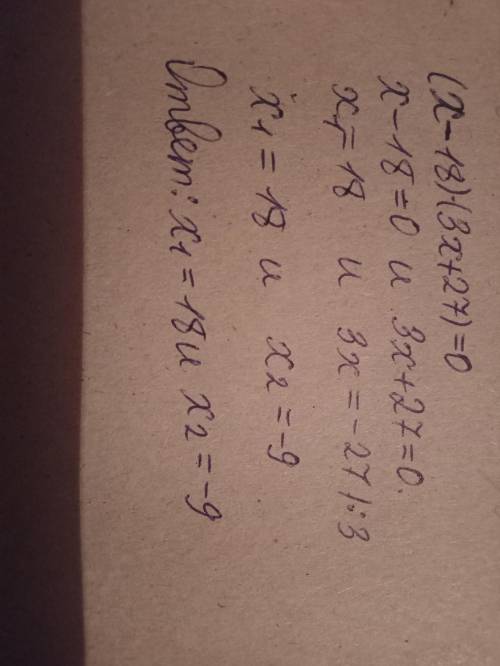 (x-18)·(3x+27)=0
x-18=0 и 3x+27=0.
x₁=18 и 3x=-27|:3
x₁=18 и x₂=-9
Ответ: x₁=18 и x₂=-9